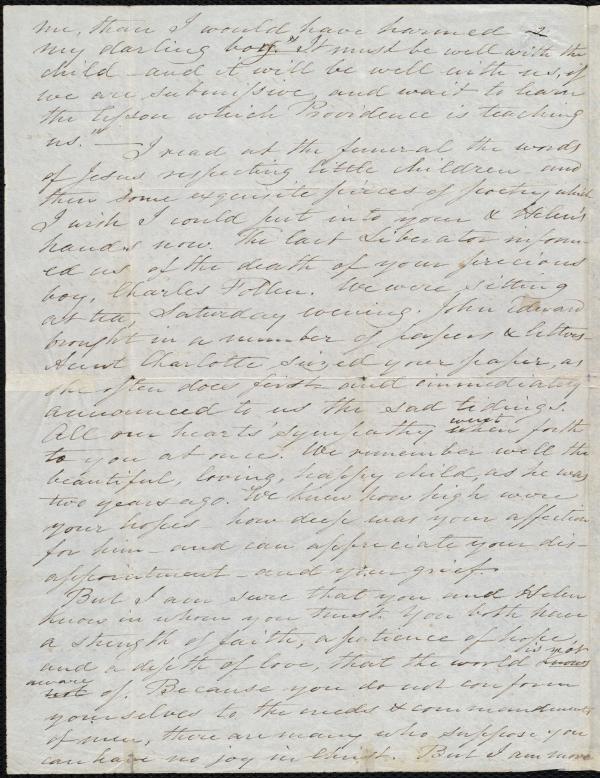 me, than I would have harmed 2
my darling boy." It must be well with the
child - and it will be well with us, if
we are submissive, and wait to learn
the lesson which Providence is teaching
us." — I read at the funeral the words
of Jesus respecting little children - and
then some exquisite pieces of poetry, which
I wish I could put into your & Helen's
hands now. The last Liberator inform-
ed us of the death of your precious
boy, Charles Follen. We were sitting
at tea, Saturday evening. John Edward
brought in a number of papers & letters -
Aunt Charlotte seized your paper, as
she often does first - and immediately
announced to us the sad tidings.
All our hearts' sympathy went forth
to you at once. We remember well the
beautiful, loving, happy child, as he was
two years ago. We knew how high were
your hopes - how deep was your affection
for him - and can appreciate your dis-
appointment - and your grief.
But I am sure that you and Helen
know in whom you trust. You both have
a strength of faith, a patience of hope,
and a depth of love, that the world is not knows
aware not of. Because you do not conform
yourselves to the creeds & commandments
of men, there are many who suppose you
can have no joy in Christ. But I am more